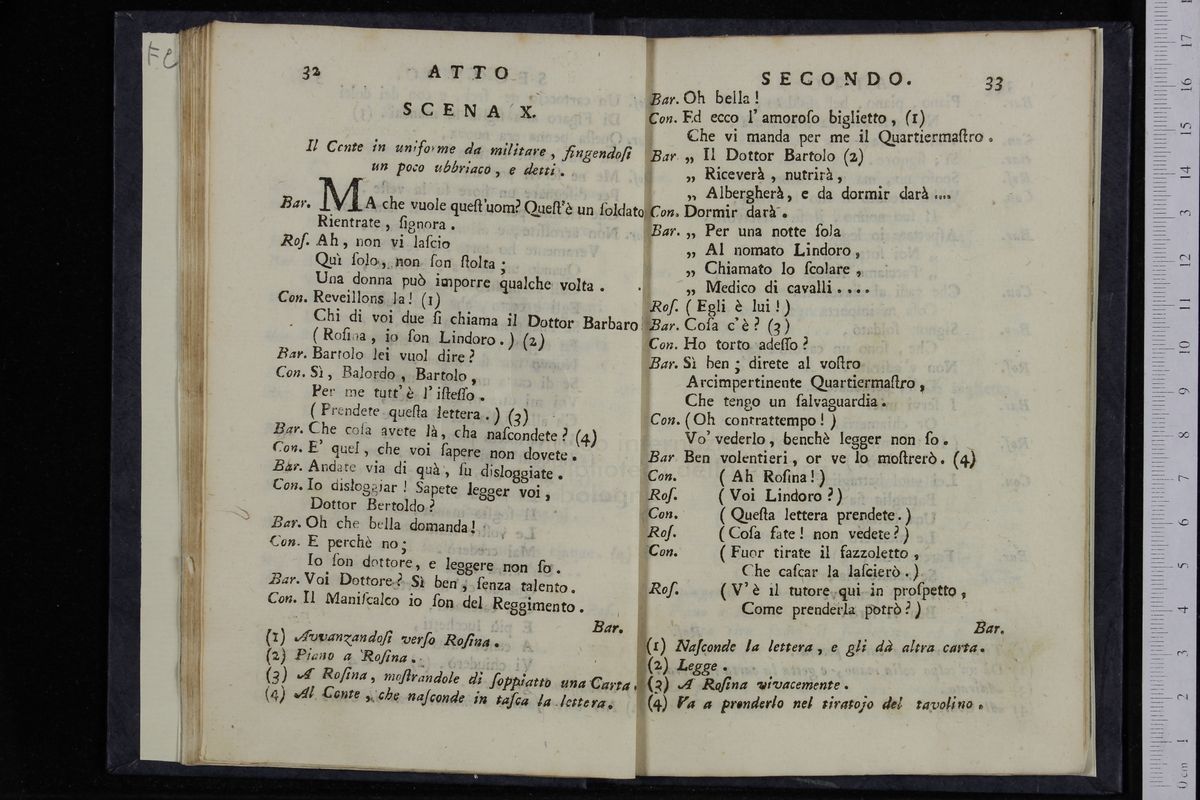 Fe
32 ATTO
SCENA X.
Il Conte in uniforme da militare, fingendoſi
un poco ubbriaco, e detti.
Bar. MA che vuole queſt'uom? Queſt'è un ſoldato
Rientrate, ſignora.
Roſ. Ah, non vi laſcio
Quì ſolo, non ſon ſtolta;
Una donna può imporre qualche volta.
Con. Reveillons la! (1)
Chi di voi due ſi chiama il Dottor Barbaro
(Roſina, io ſon Lindoro.) (2)
Bar. Bartolo lei vuol dire?
Con. Sì, Balordo, Bartolo,
Per me tutt'è l'iſteſſo.
(Prendete queſta lettera.) (3)
Bar. Che coſa avete là, cha naſcondete? (4)
Con. E' quel, che voi ſapere non dovete.
Bar. Andate via di quà, ſu disloggiate.
Con. Io disloggiar! Sapete legger voi,
Dottor Bertoldo?
Bar. Oh che bella domanda!
Con. E perchè no;
Io ſon dottore, e leggere non ſo.
Bar. Voi Dottore? Sì ben, ſenza talento.
Con. Il Maniſcalco io ſon del Reggimento.
Bar.
(1) Avvanzandoſi verſo Roſina.
(2) Piano a Roſina.
(3) A Roſina, moſtrandole di ſoppiatto una Carta.
(4) Al Conte, che naſconde in taſca la lettera.
SECONDO. 33
Bar. Oh bella!
Con. Ed ecco l'amoroſo biglietto, (1)
Che vi manda per me il Quartiermaſtro.
Bar „ Il Dottor Bartolo (2)
„ Riceverà, nutrirà,
„ Albergherà, e da dormir darà ....
Con. Dormir darà.
Bar. „ Per una notte ſola
„ Al nomato Lindoro,
„ Chiamato lo ſcolare,
„ Medico di cavalli ....
Roſ. (Egli è lui!)
Bar. Coſa c'è? (3)
Con. Ho torto adeſſo?
Bar. Sì ben; direte al voſtro
Arcimpertinente Quartiermaſtro,
Che tengo un ſalvaguardia.
Con. (Oh contrattempo!)
Vo' vederlo, benchè legger non ſo.
Bar Ben volentieri, or ve lo moſtrerò. (4)
Con. (Ah Roſina!)
Roſ. (Voi Lindoro?)
Con. (Queſta lettera prendete.)
Roſ. (Coſa fate! non vedete?)
Con. (Fuor tirate il fazzoletto,
Che caſcar la laſcierò.)
Roſ. (V'è il tutore qui in proſpetto,
Come prenderla potrò?)
Bar.
(1) Naſconde la lettera, e gli dà altra carta.
(2) Legge.
(3) A Roſina vivacemente.
(4) Va a prenderlo nel tiratojo del tavolino.
0 cm 1 2 3 4 5 6 7 8 9 10 11 12 13 14 15 16 17